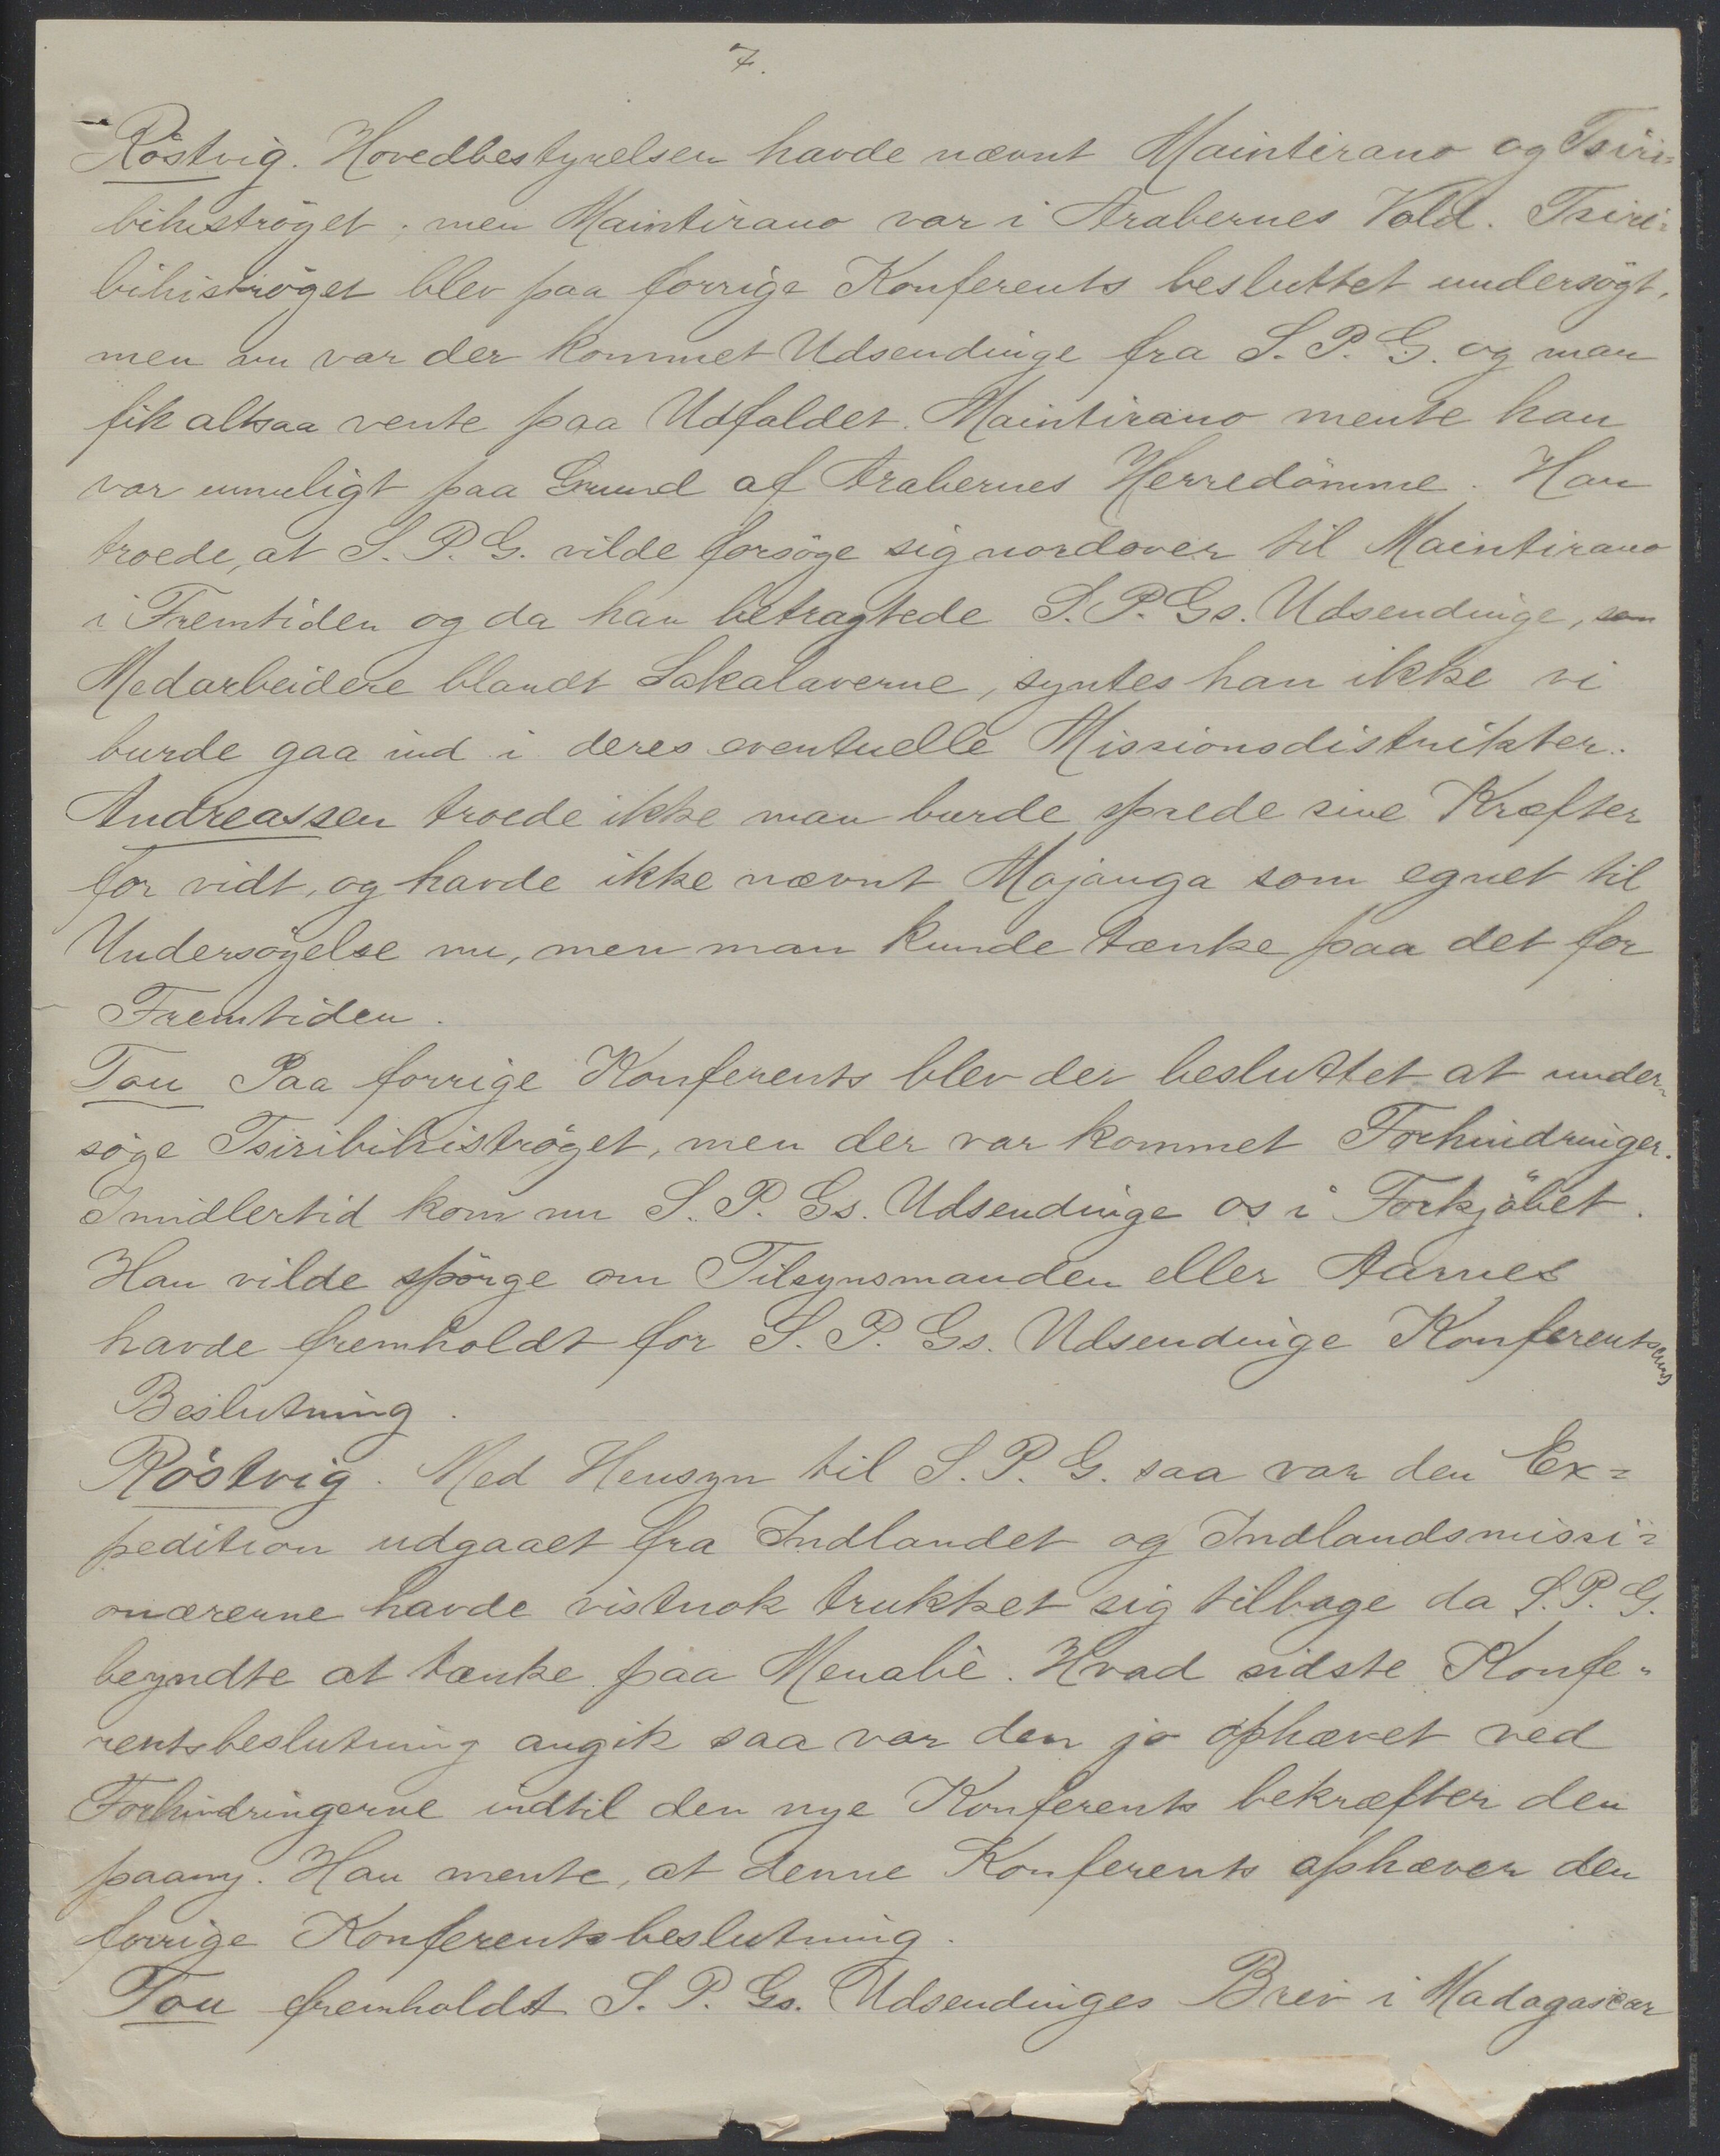 7.
Röstvig. Hovedbestyrelsen havde nævnt Maintirano og Tsiri=
bihiströget; men Maintirano var i Arabernes Vold. Tsiri=
bihiströget blev paa forrige Konferents besluttet undersögt,
men nu var der kommet Udsendinge fra S. P. G. og man
fik altsaa vente paa Udfaldet. Maintirano mente han
var umuligt paa Grund af Arabernes Herredömme. Han
troede, at S. P. G. vilde forsöge sig nordover til Maintirano
i Fremtiden og da han betragtede S. P. Gs. Udsendinge, som
Medarbeidere blandt Sakalaverne, syntes han ikke vi
burde gaa ind i deres eventuelle Missionsdistrikter.
Andreassen troede ikke man burde sprede sine Kræfter
for vidt, og havde ikke nævnt Majanga som egnet til
Undersögelse nu, men man kunde tænke paa det for
Fremtiden.
Tou Paa forrige Konferents blev der besluttet at under=
söge Tsiribihiströget, men der var kommet Forhindringer.
Imidlertid kom nu S. P. Gs. Udsendinge os i Forkjöbet.
Han vilde spörge om Tilsynsmanden eller Aarnes
havde fremholdt for S. P. Gs. Udsendinge Konferentsens
Beslutning.
Röstvig. Med Hensyn til S. P. G. saa var den Ex=
pedition udgaaet fra Indlandet og Indlandsmissi=
onærerne havde vistnok trukket sig tilbage da S. P. G.
begyndte at tænke paa Menabè. Hvad sidste Konfe=
rentsbeslutning angik saa var den jo ophævet ved
Forhindringerne indtil den nye Konferents bekræfter den
paany. Han mente, at denne Konferents ophæver den
forrige Konferentsbeslutning.
Tou fremholdt S. P. Gs. Udsendinges Brev i Madagascar